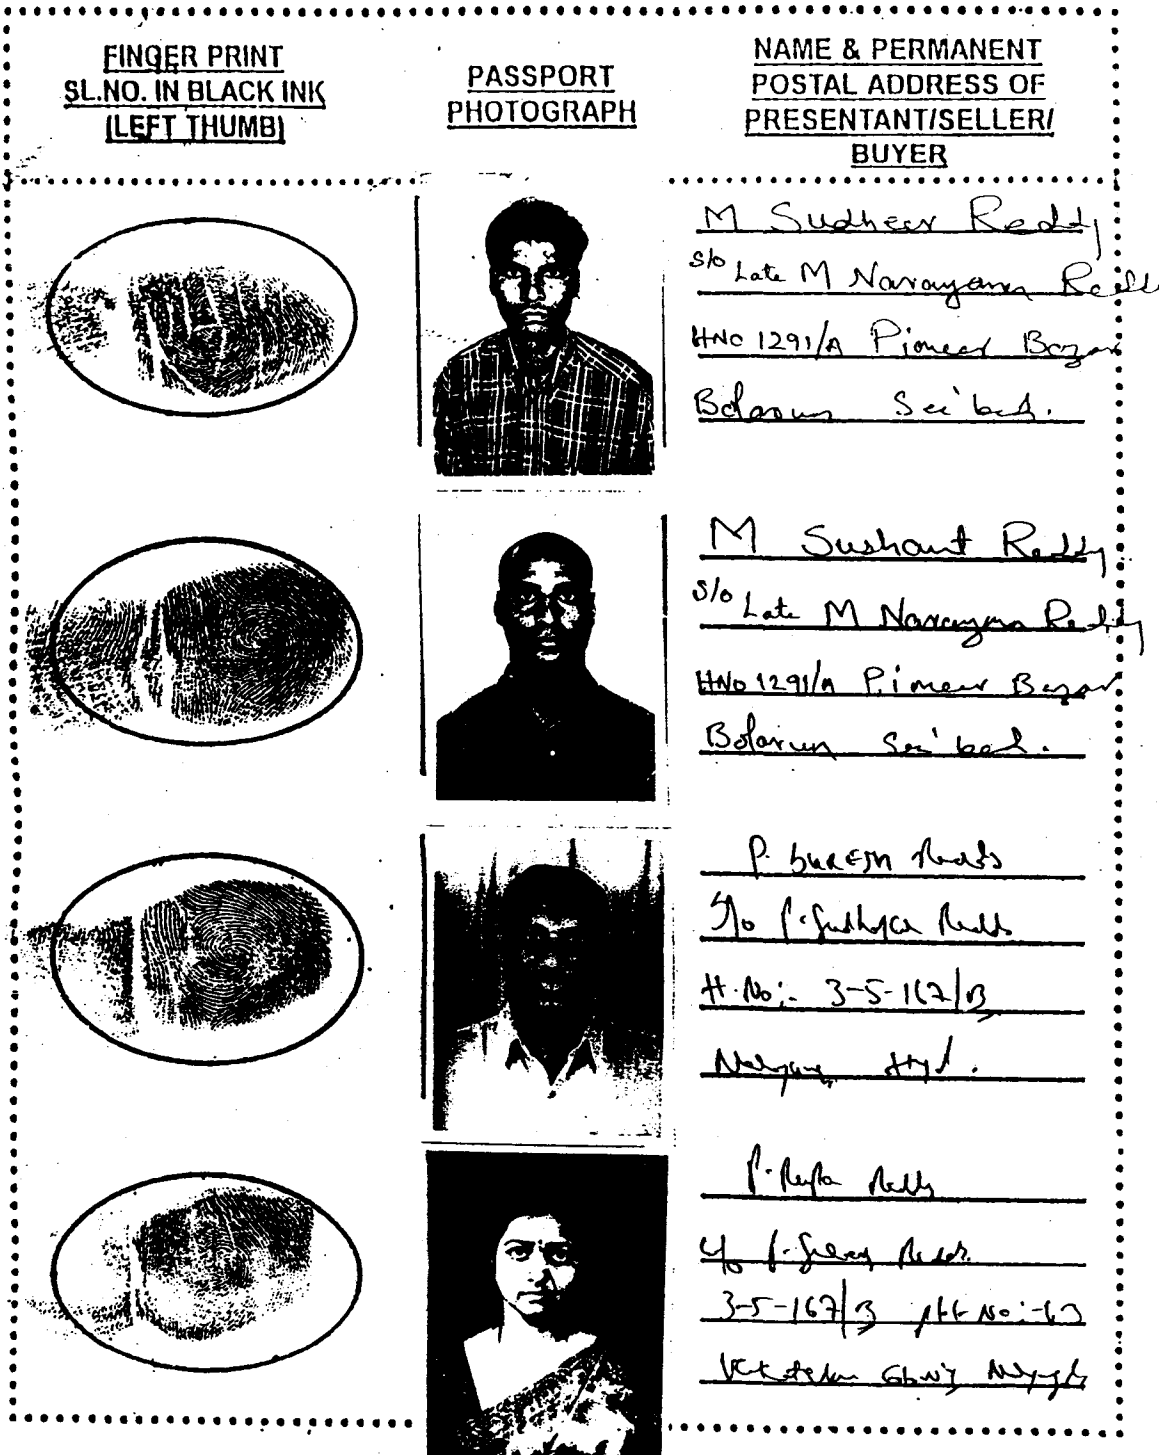 FINGER PRINT
SL.NO. IN BLACK INK
(LEFT THUMB)
PASSPORT
PHOTOGRAPH
NAME & PERMANENT
POSTAL ADDRESS OF
PRESENTANT/SELLER/
BUYER
M Sudheer Reddy
S/o Late M Narayana Reddy
HNo 1291/A Pioneer Bazar
Bolarum Sec'bad.
M Sushant Reddy
S/o Late M Narayana Reddy
HNo 1291/A Pioneer Bazar
Bolarum Sec'bad.
P. SURESH Reddy
S/o P. Reddy
H.No:- 3-5-167/B
Hyd.
P. Reddy
P. Reddy
3-5-167/B No:-